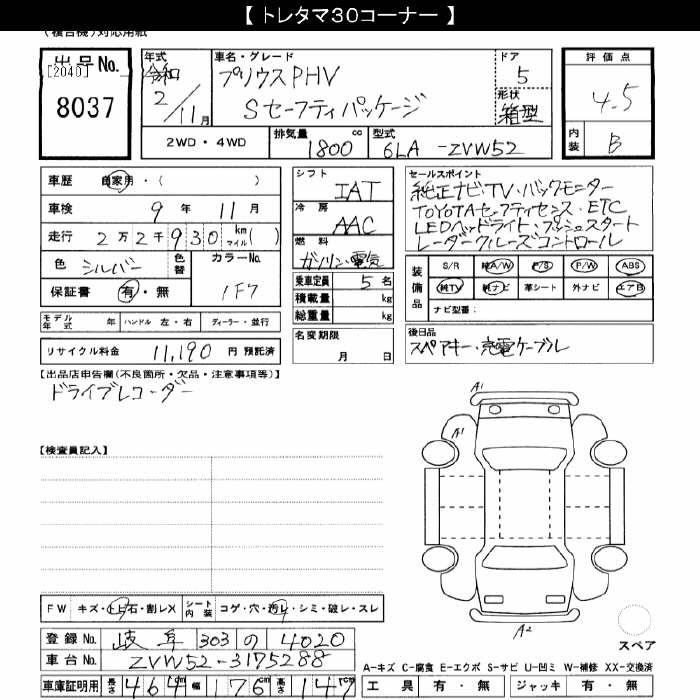 【 トレタマ30コーナー 】
(複合機)対応用紙
出品No.
[2040]
8037
年式 令和 2/11月
車名・グレード プリウスPHV
Sセーフティパッケージ
ドア 5
形状 箱型
評価点 4.5
内装 B
2WD・4WD 排気量 1800 cc 型式 6LA-ZVW52
車歴 自家用・( )
車検 9年 11月
走行 2万2千930 km マイル( )
色 シルバー 色替 カラーNo. 1F7
保証書 有・無
モデル年式 年 ハンドル 左・右 ディーラー・並行
リサイクル料金 11,190 円 預託済
シフト IAT
冷房 AAC
燃料 ガソリン・電気
乗車定員 5 名
積載量 kg
総重量 kg
名変期限 月 日
セールスポイント
純正ナビ・TV・バックモニター
TOYOTAセーフティセンス・ETC
LEDヘッドライト・プッシュスタート
レーダークルーズコントロール
装備品 S/R 純A/W P/S P/W ABS
純TV 純ナビ 革シート 外ナビ エアB
ナビ型番：
後日品
スペアキー・充電ケーブル
【出品店申告欄(不良箇所・欠品・注意事項等)】
ドライブレコーダー
【検査員記入】
A1
A1
A2
スペア
FW キズ・トビ石・割レX シート内装 コゲ・穴・汚レ・シミ・破レ・スレ
登録No. 岐阜 303 の 4020
車台No. ZVW52-3175288
車庫証明用 長さ 464 cm 幅 176 cm 高さ 147 cm
A-キズ C-腐食 E-エクボ S-サビ U-凹ミ W-補修 XX-交換済
工具 有・無 ジャッキ 有・無